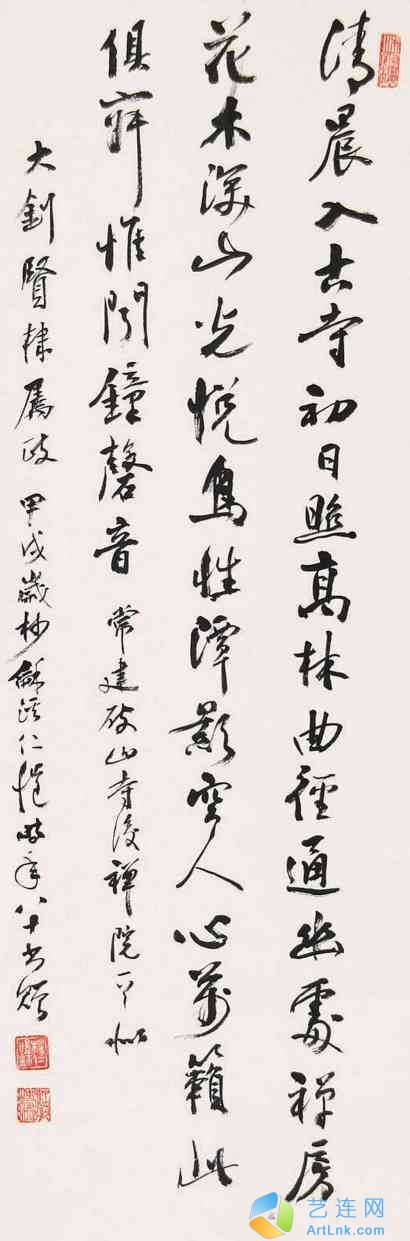 清晨入古寺初日照高林曲徑通幽處禪房
花木深山光悅鳥性潭影空人心萬籟此
俱寂惟聞鐘磬音 常建破山寺後禪院
大釗賢棣屬政 甲戌歲杪龢溪仁愷時年八十
艺连网
ArtLnk.com